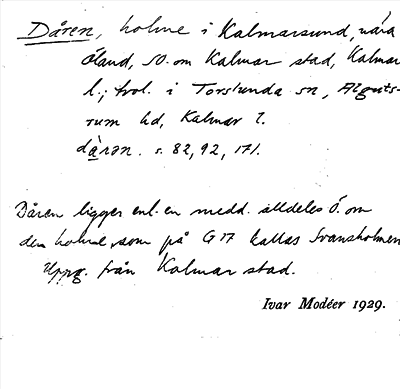 Dåren, holme i Kalmarsund, nära
Öland, SO. om Kalmar stad, Kalmar
l.; trol. i Torslunda sn, Alguts-
rum hd, Kalmar l.
dåran. s. 82, 92, 171.
Dåren ligger enl. en medd. alldeles Ö. om
den holme, som på G 17 kallas Svansholmen
Uppg. från Kalmar stad.
Ivar Modéer 1929.